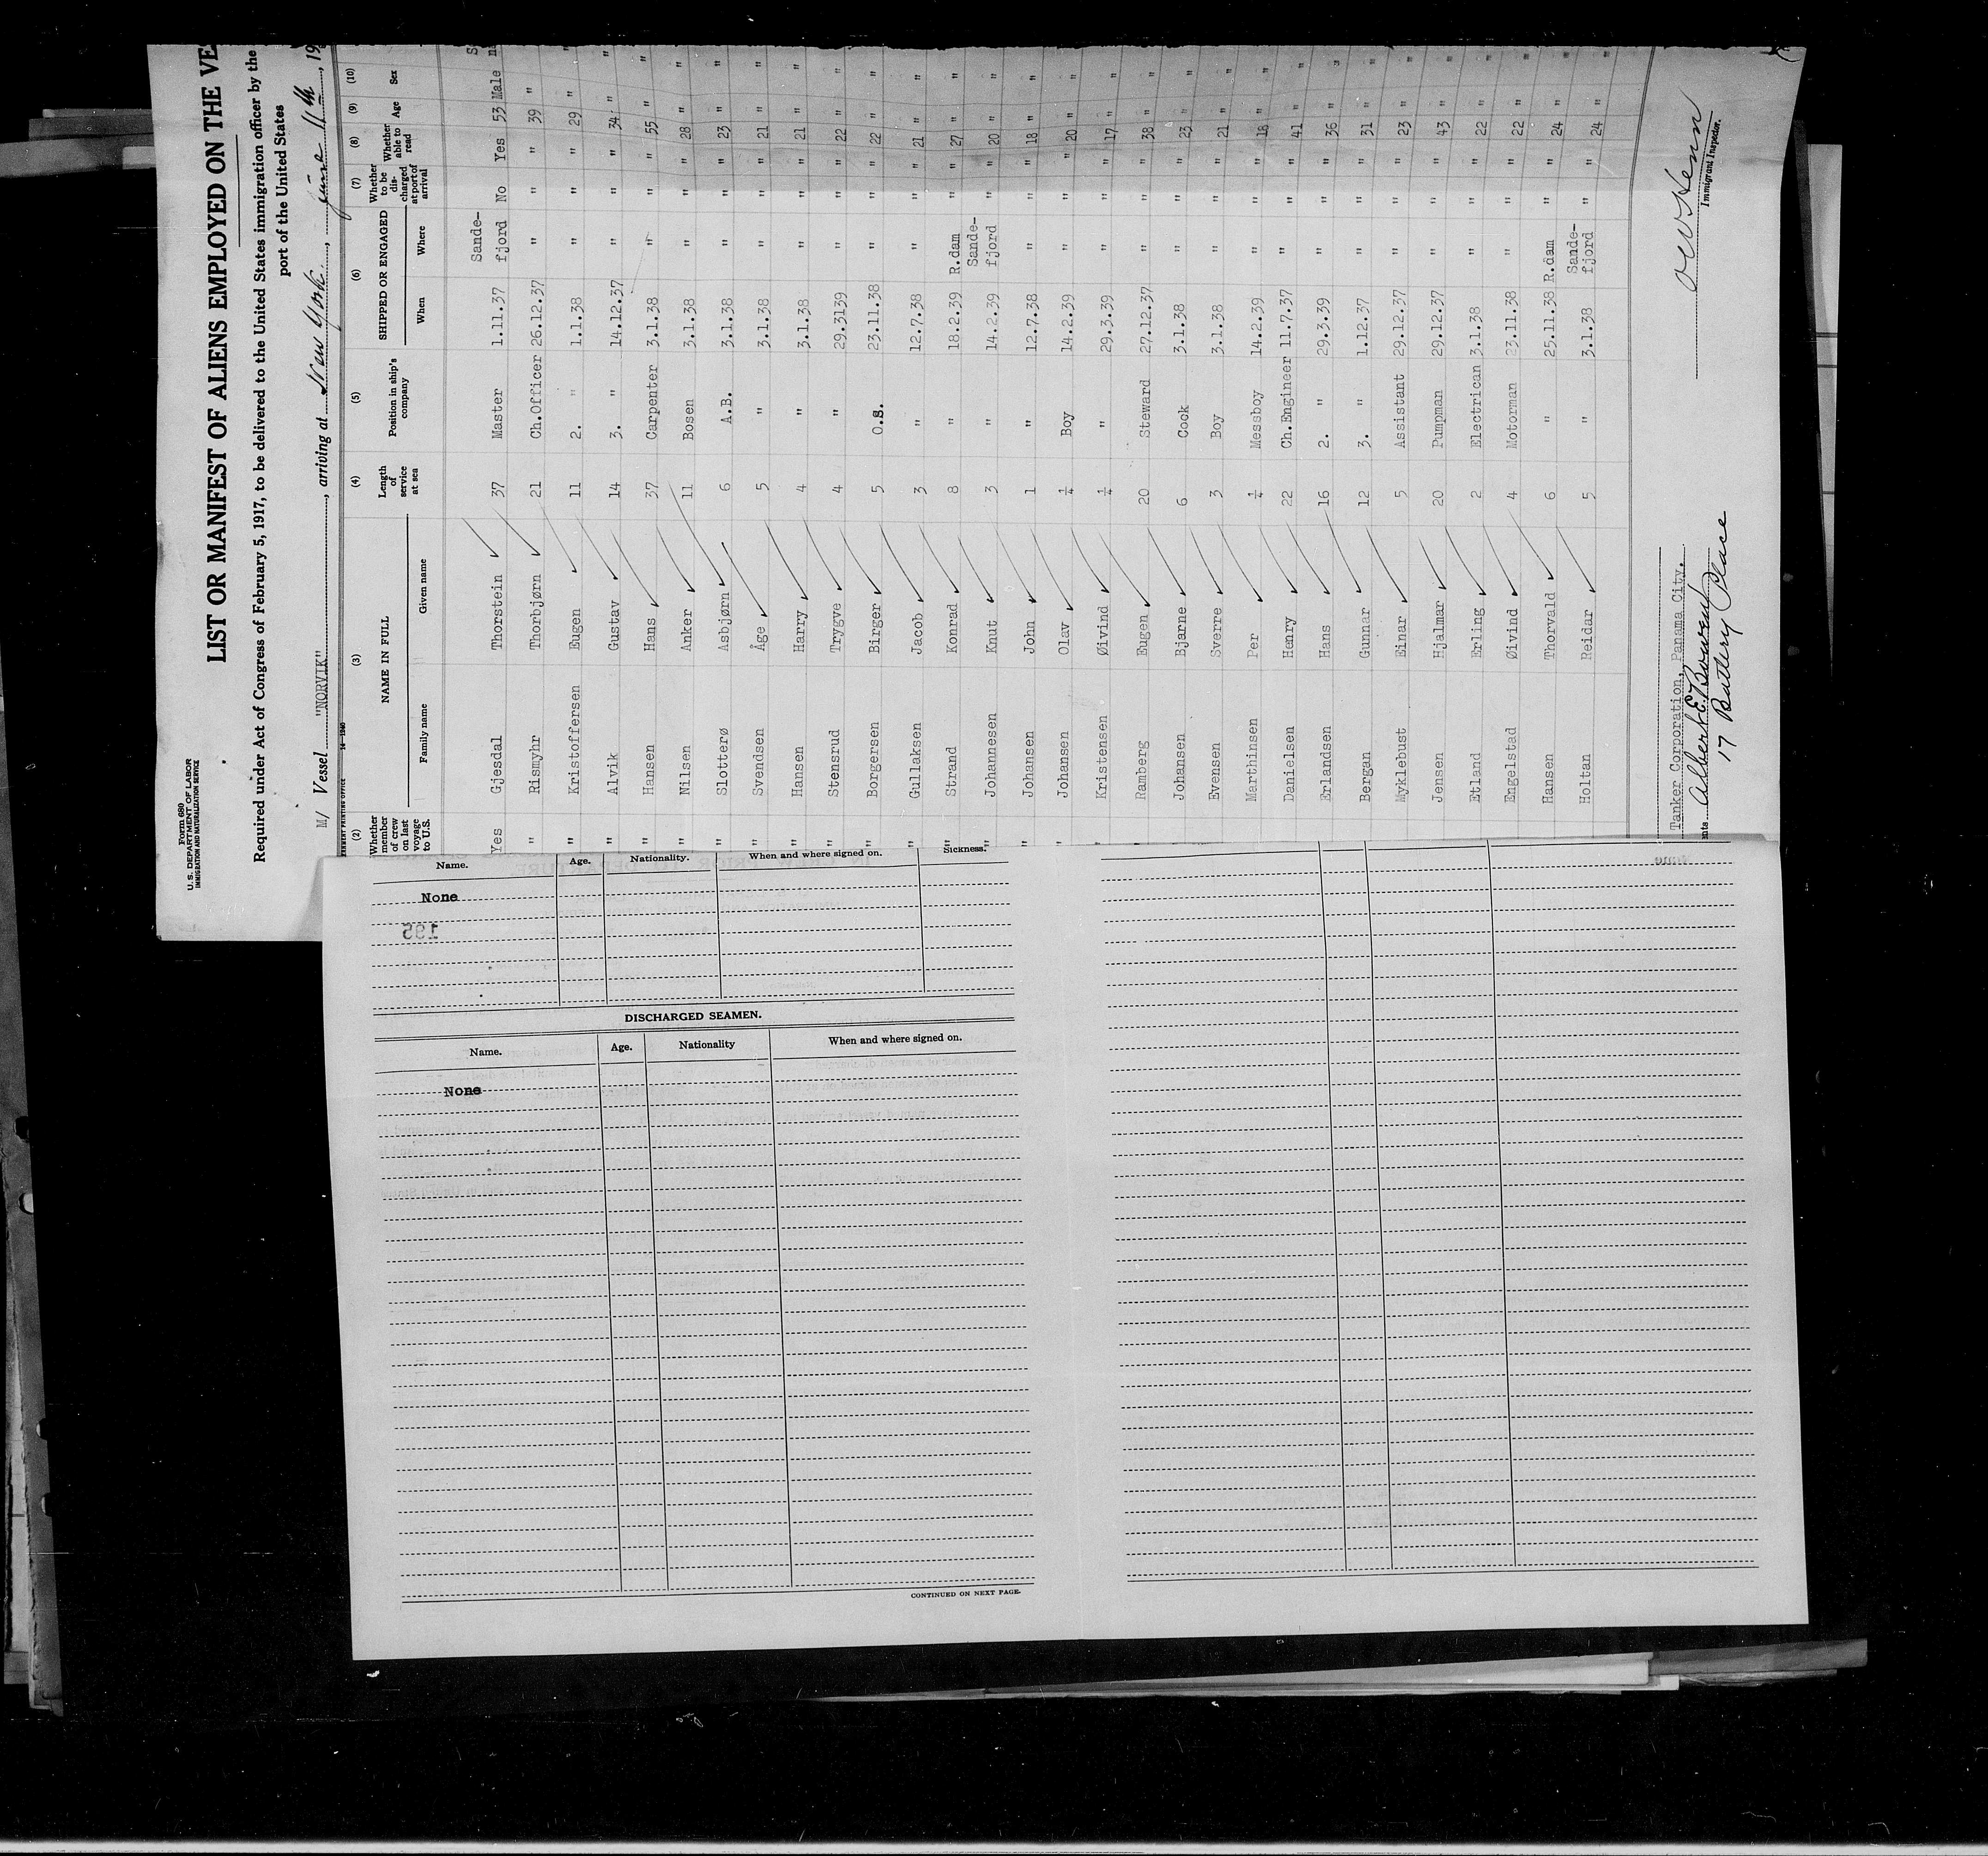 Form 680
U. S. DEPARTMENT OF LABOR
IMMIGRATION AND NATURALIZATION SERVICE
LIST OR MANIFEST OF ALIENS EMPLOYED ON THE VE
Required under Act of Congress of February 5, 1917, to be delivered to the United States immigration officer by the
port of the United States
M/ Vessel "NORVIK", arriving at New York, June 11th, 19
14—1240
(2) (3) (4) (5) (6) (7) (8) (9) (10)
Whether member of crew on last voyage to U.S. NAME IN FULL Length of service at sea Position in ship's company SHIPPED OR ENGAGED Whether to be discharged at port of arrival Whether able to read Age Sex
Family name Given name When Where
Yes Gjesdal Thorstein 37 Master 1.11.37 Sande-fjord No Yes 53 Male
" Rismyhr Thorbjørn 21 Ch.Officer 26.12.37 " " " 39 "
" Kristoffersen Eugen 11 2. " 1.1.38 " " " 29 "
" Alvik Gustav 14 3. " 14.12.37 " " " 34 "
" Hansen Hans 37 Carpenter 3.1.38 " " " 55 "
" Nilsen Anker 11 Bosen 3.1.38 " " " 28 "
" Slotterø Asbjørn 6 A.B. 3.1.38 " " " 23 "
" Svendsen Åge 5 " 3.1.38 " " " 21 "
" Hansen Harry 4 " 3.1.38 " " " 21 "
" Stensrud Trygve 4 " 29.3139 " " " 22 "
" Borgersen Birger 5 O.S. 23.11.38 " " " 22 "
" Gullaksen Jacob 3 " 12.7.38 " " " 21 "
" Strand Konrad 8 " 18.2.39 R.dam " " 27 "
" Johannesen Knut 3 " 14.2.39 Sande-fjord " " 20 "
" Johansen John 1 " 12.7.38 " " " 18 "
" Johansen Olav ¼ Boy 14.2.39 " " " 20 "
" Kristensen Øivind ¼ " 29.3.39 " " " 17 "
Ramberg Eugen 20 Steward 27.12.37 " " " 38 "
Johansen Bjarne 6 Cook 3.1.38 " " " 23 "
Evensen Sverre 3 Boy 3.1.38 " " " 21 "
Marthinsen Per ¼ Messboy 14.2.39 " " " 18 "
Danielsen Henry 22 Ch.Engineer 11.7.37 " " " 41 "
Erlandsen Hans 16 2. " 29.3.39 " " " 36 "
Bergan Gunnar 12 3. " 1.12.37 " " " 31 "
Myklebust Einar 5 Assistant 29.12.37 " " " 23 "
Jensen Hjalmar 20 Pumpman 29.12.37 " " " 43 "
Etland Erling 2 Electrican 3.1.38 " " " 22 "
Engelstad Øivind 4 Motorman 23.11.38 " " " 22 "
Hansen Thorvald 6 " 25.11.38 R.dam " " 24 "
Holtan Reidar 5 " 3.1.38 Sande-fjord " " 24 "
Tanker Corporation, Panama City.
Albert E. Bowen
17 Battery Place
Immigrant Inspector.
Name. Age. Nationality. When and where signed on. Sickness.
None
195
DISCHARGED SEAMEN.
Name. Age. Nationality When and where signed on.
None
CONTINUED ON NEXT PAGE.